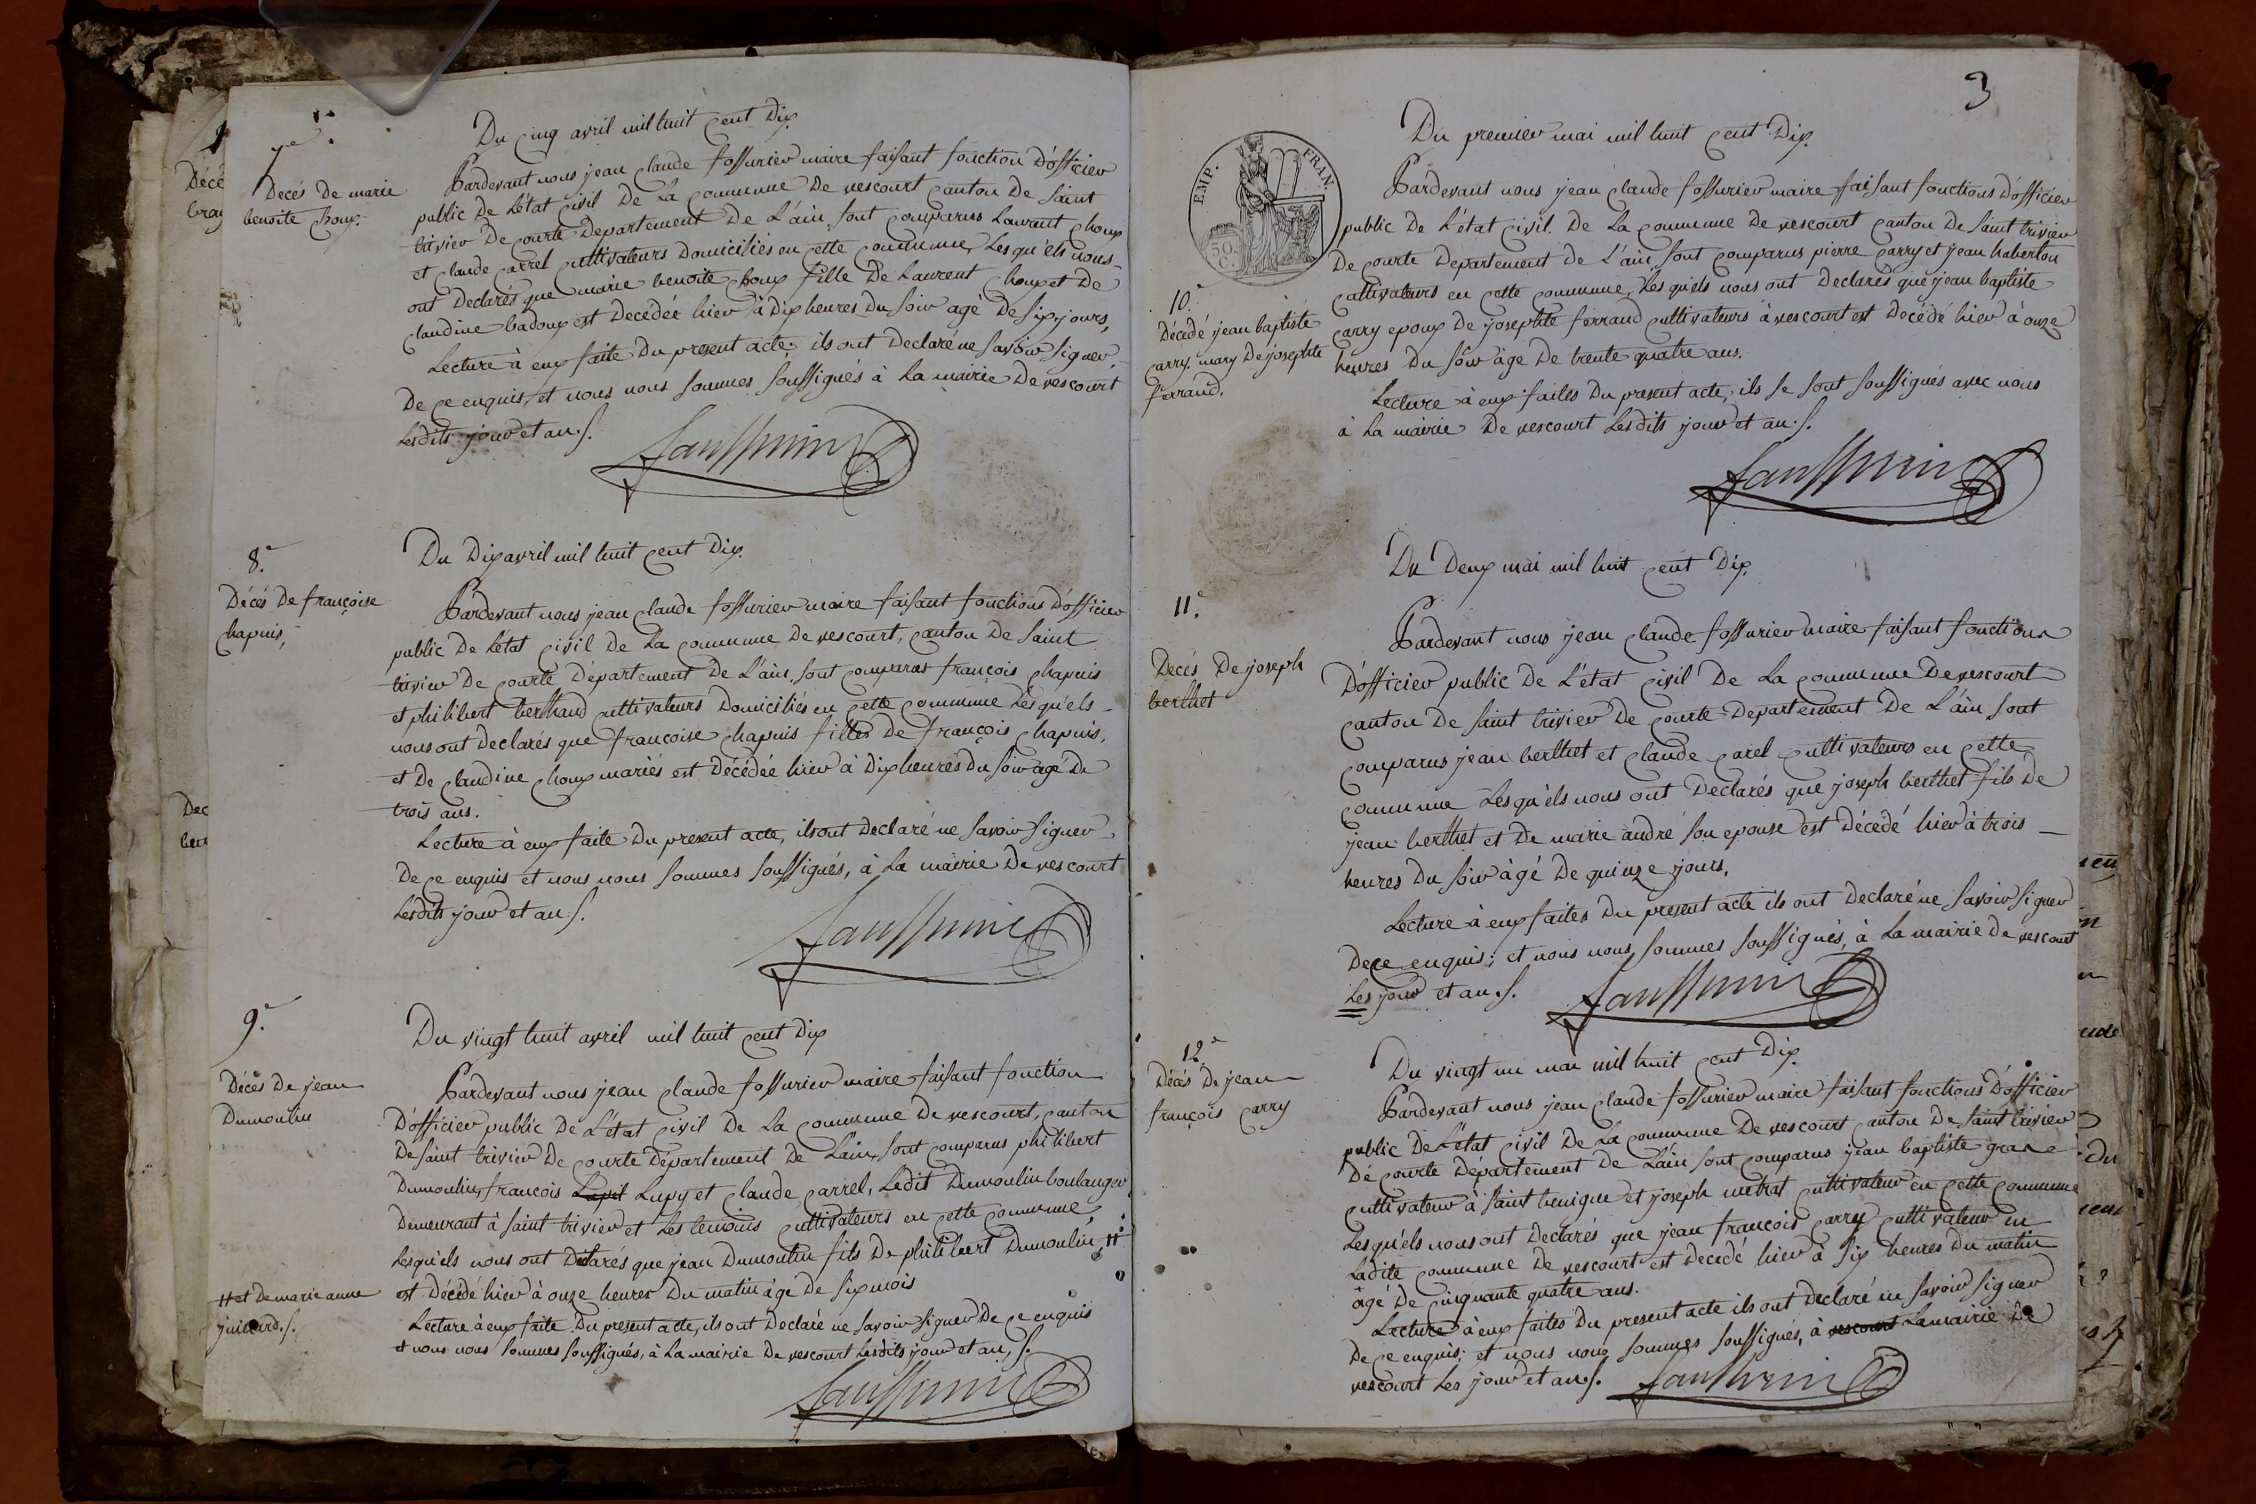 7.e
Decés De marie
benoite Choux.
Du Cinq avril mil huit Cent Dix
Pardevant nous jean Claude fossurier maire faisant fonction D'officier
public De L'état Civil De La Commune De vescourt Canton De Saint
trivier De Courte Departement De L'ain, sont Comparus Laurant Choux
et Claude Carrel Cultivateurs Domiciliés en Cette Commune, Lesqu'els nous
ont Declarés que marie benoite Choux fille De Laurent Choux et De
Claudine badoux est Decédée hier à Dix heures Du Soir agé De Six jours,
Lecture à eux faite Du present acte, ils ont Declaré ne Savoir Signer
De Ce enquis, et nous nous sommes Soussignés à La mairie De vescourt
Lesdits jour et an ./.
8.e
Décés De françoise
Chapuis,
Du Dix avril mil huit Cent Dix.
Pardevant nous jean Claude fossurier maire faisant fonctions D'officier
public De Létat Civil De La Commune De vescourt, Canton De Saint
trivier De Courte Département De L'ain, Sont Comparus françois Chapuis
et philibert berthaud Cultivateurs Domiciliés en Cette Commune Lesqu'els
nous ont Declarés que françoise Chapuis filles De françois Chapuis,
et De Claudine Choux mariés est Décédée hier à Dix heures Du Soir agé De
trois ans.
Lecture à eux faite Du present acte, ils ont Declaré ne Savoir Signer
De Ce enquis et nous nous Sommes Soussignés, à La mairie De vescourt
Lesdits jour et an ./.
9.e
Décès De jean
Dumoulin
Du vingt huit avril mil huit Cent Dix
Pardevant nous jean Claude fossurier maire faisant fonction
D'officier public De L'état Civil De La Commune De vescourt, Canton
De Saint trivier De Courte Département De Lain, Sont Comparus philibert
Dumoulin, françois Lupy et Claude Carrel, Ledit Dumoulin boulanger
Demeurant à Saint trivier et Les temoins Cultivateurs en Cette Commune,
Lesqu'els nous ont Déclarés que jean Dumoulin fils De philibert Dumoulin #
# et De marie anne
juillard ./.
est Décédé hier à onze heures Du matin âge De Six mois
Lecture à eux faite Du present acte, ils ont Declaré ne Savoir Signer De Ce enquis
et nous nous Sommes Soussignés, à La mairie De vescourt Lesdits jour et an, ./.
3
EMP. FRAN.
50
C.
10.e
Décédé jean baptiste
Carry mary De josephte
ferrand.
Du premier mai mil huit Cent Dix.
Pardevant nous jean Claude fossurier maire faisant fonctions D'officier
public De L'état Civil. De La Commune De vescourt Canton De Saint trivier
De Courte Departement De L'ain Sont Comparus pierre Carry et jean haberton
Cultivateurs en Cette Commune, Lesquels nous ont Declarés que jean baptiste
Carry epoux De josephte ferrand Cultivateurs à vescourt est Décédé hier à onze
heures Du Soir âge De trente quatre ans.
Lecture à eux faites Du present acte, ils Se Sont Soussignés avec nous
à La mairie De vescourt Lesdits jour et an ./.
11.e
Decés De joseph
berthet
Du Deux mai mil huit Cent Dix.
Pardevant nous jean Claude fossurier maire faisant fonctions
D'officier public De L'état Civil De La Commune De vescourt
Canton De Saint trivier De Courte Departement De L'ain Sont
Comparus jean berthet et Claude Carel Cultivateurs en Cette
Commune Lesqu'els nous ont Declarés que joseph berthet fils De
jean berthet et De marie andré Son epouse est Décédé hier à trois
heures Du Soir àgé De quinze jours.
Lecture à eux faites Du present acte ils ont Declaré ne Savoir Signer
De Ce enquis; et nous nous Sommes Soussignés, à La mairie De vescourt
Les jour et an ./.
12.e
Décés De jean
françois Carry
Du vingt un mai mil huit Cent Dix.
Pardevant nous jean Claude fossurier maire faisant fonctions D'officier
public De L'état Civil De La Commune De vescourt Canton De Saint trivier
Dé Courte Département De Lain Sont Comparus jean baptiste
Cultivateur à Saint benigne et joseph metrat Cultivateur en Cette Commune
Lesqu'els nous ont Declarés que jean françois Carry Cultivateur en
Ladite Commune De vescourt est Decedé hier à Six heures Du matin
âgé De Cinquante quatre ans.
Lecture à eux faites Du present acte ils ont Declaré ne Savoir Signer
De Ce enquis; et nous nous Sommes Soussignés, à vescourt La mairie De
vescourt Les jour et an ./.